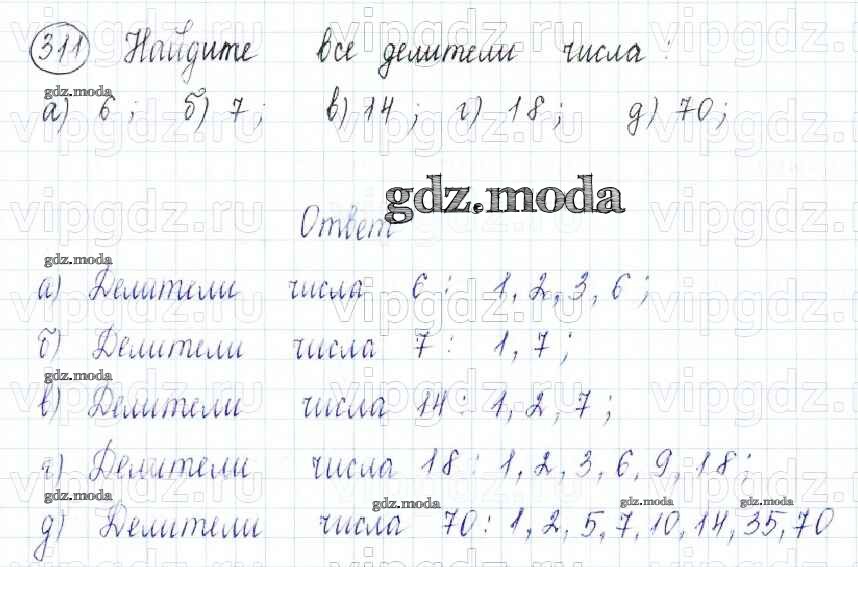 311 Найдите все делители числа:
gdz.moda
а) 6; б) 7; в) 14; г) 18; д) 70;
gdz.moda
Ответ
gdz.moda
а) Делители числа 6: 1, 2, 3, 6;
б) Делители числа 7: 1, 7;
gdz.moda
в) Делители числа 14: 1, 2, 7;
г) Делители числа 18: 1, 2, 3, 6, 9, 18;
gdz.moda gdz.moda gdz.moda gdz.moda
д) Делители числа 70: 1, 2, 5, 7, 10, 14, 35, 70